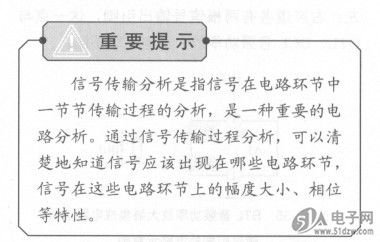 重要提示
信号传输分析是指信号在电路环节中
一节节传输过程的分析，是一种重要的电
路分析。通过信号传输过程分析，可以清
楚地知道信号应该出现在哪些电路环节，
信号在这些电路环节上的幅度大小、相位
等特性。
51电子网
www.51dzw.com